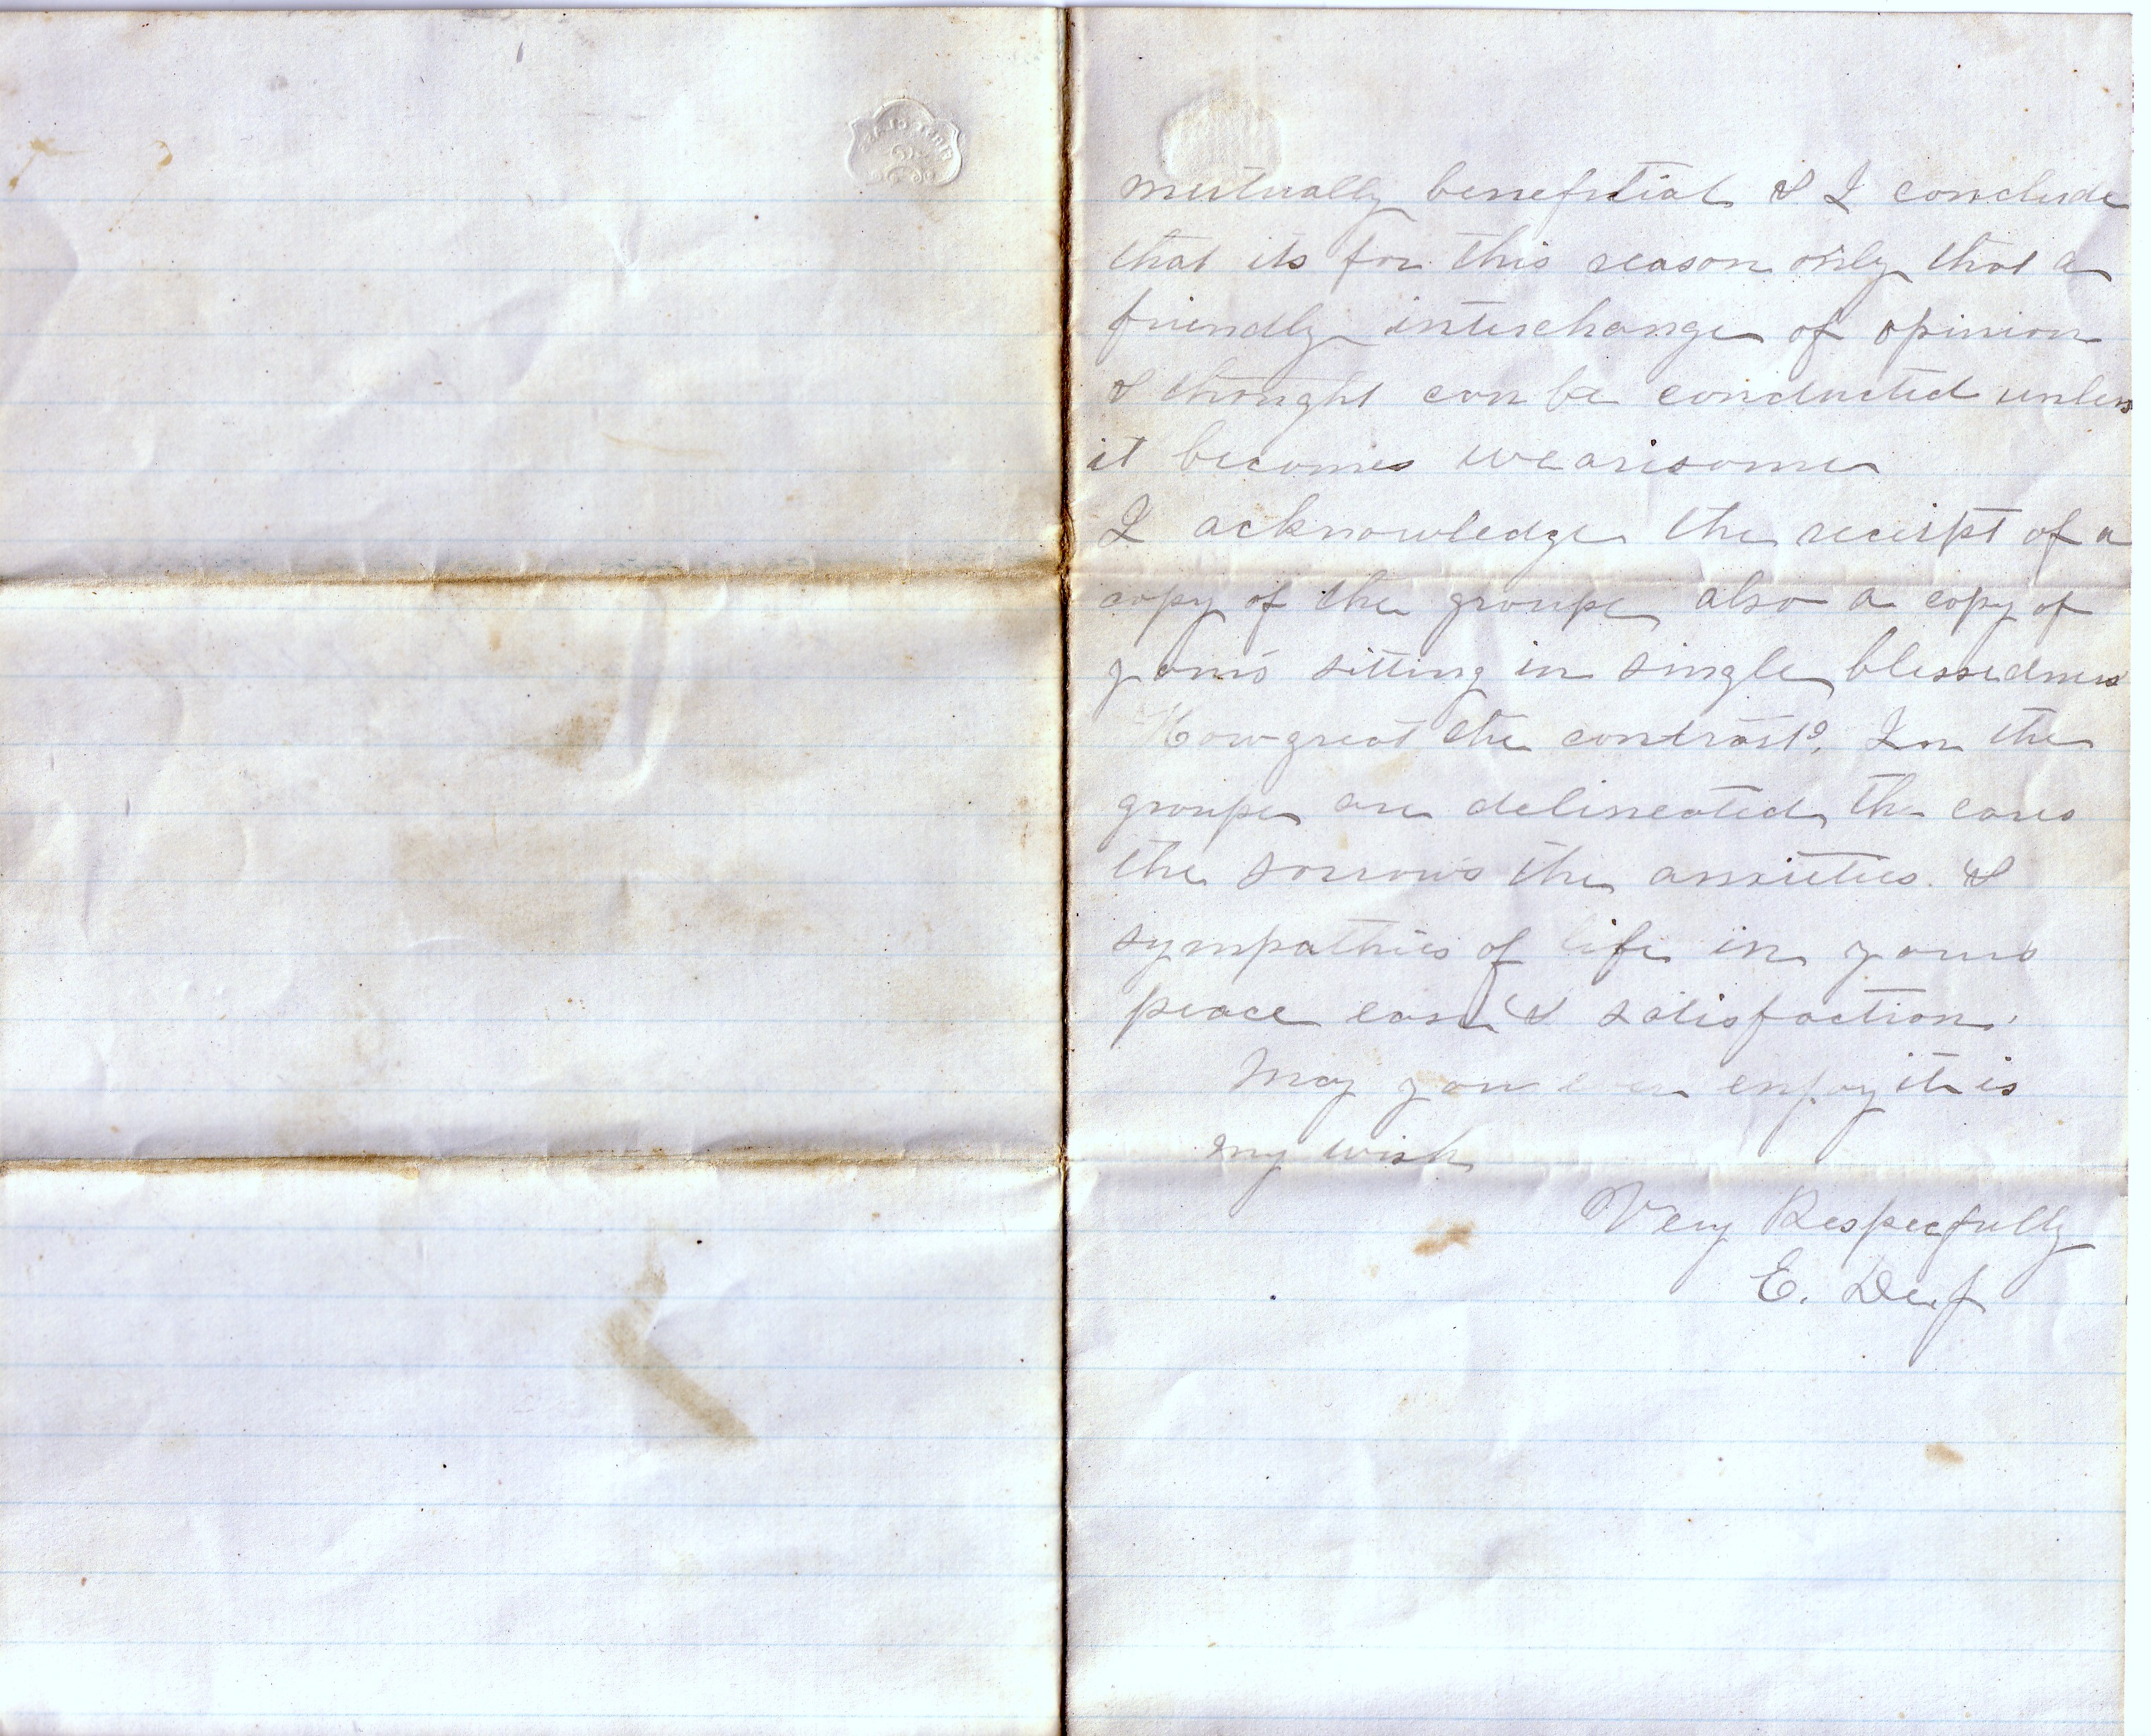 mutually benefitial & I conclude
that its for this reason only that a
friendly interchange of opinion
& thought can be conducted unless
it becomes wearisome
I acknowledge the receipt of a
copy of the groupe also a copy of
yours sitting in single blessedness
How great the contrast? In the
groupe are delineated the cares
the sorrows the anxieties &
sympathies of life in yours
peace ease & satisfaction.
May you ever enjoy it is
my wish
Very Respecfully
E.